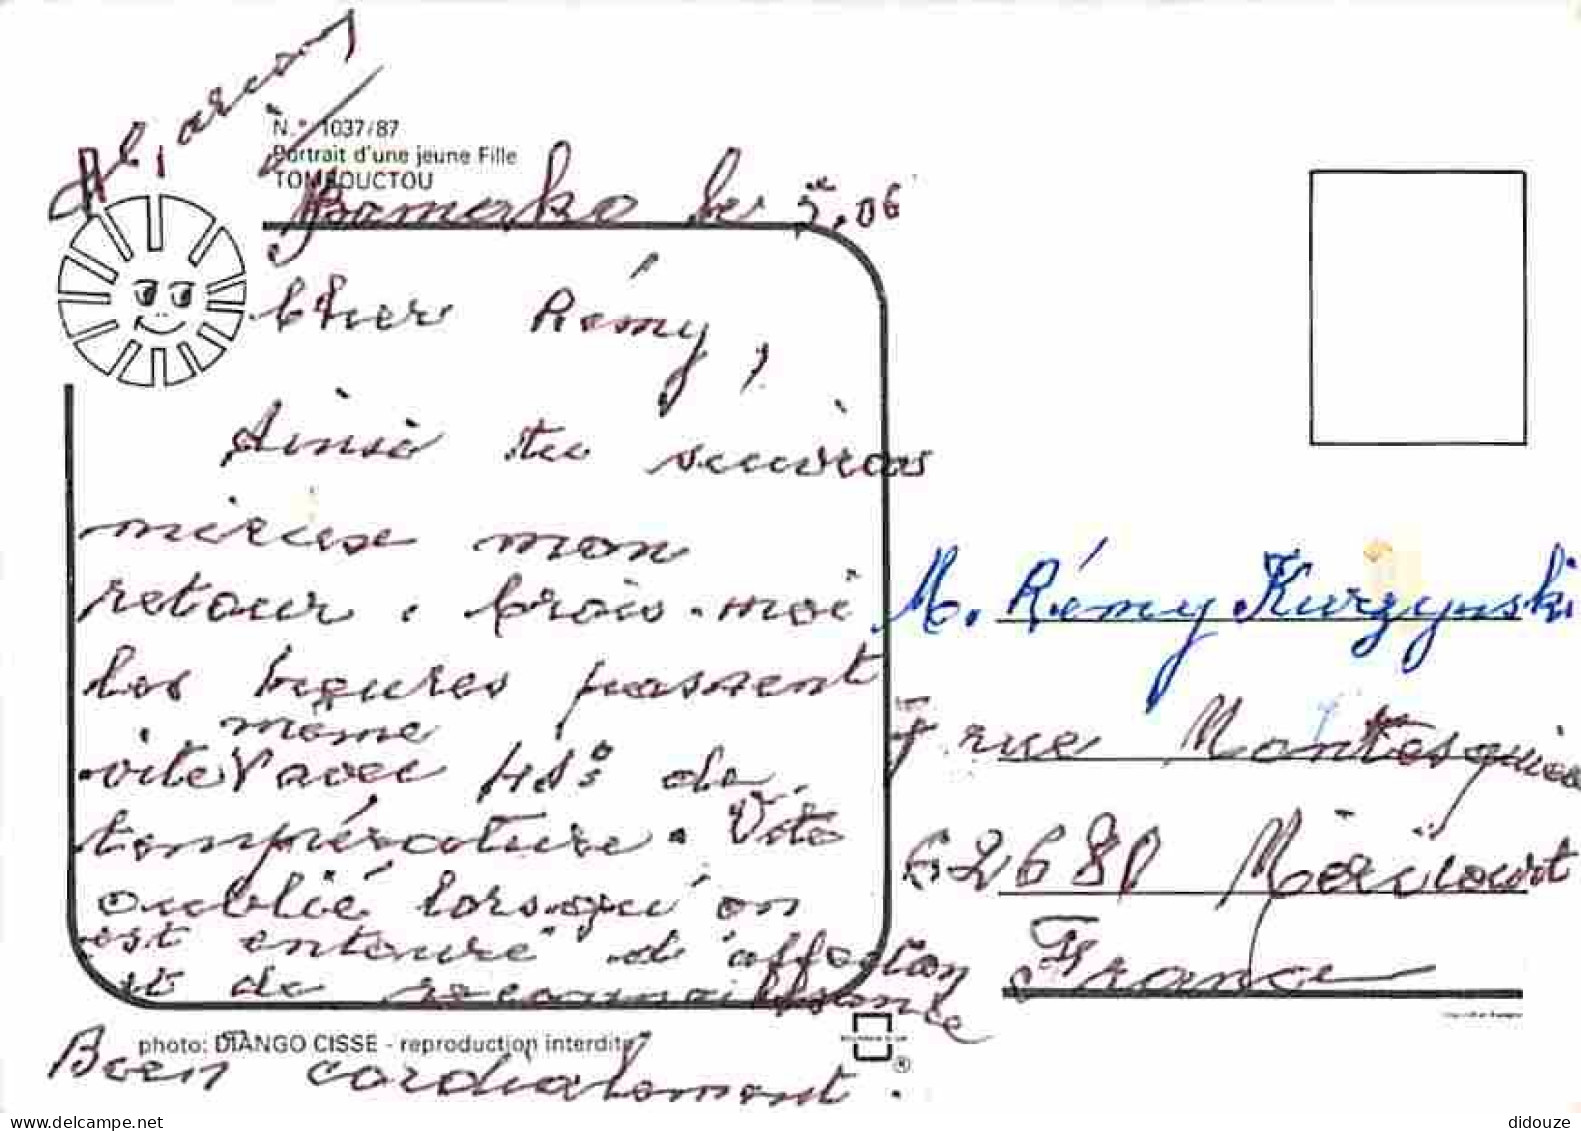 N.° 1037/87
Portrait d'une jeune Fille
TOMBOUCTOU
Bamako le 5.06
Cher Rémy,
Ainsi tu suivras
mieux mon
retour. Crois-moi
les heures passent
même
vite avec 45° de
température. Vite
oublié lorsqu'on
est entouré d'affection
et de reconnaissance
Bien cordialement.
photo: DIANGO CISSE - reproduction interdite
M. Rémy Kurzynski
7 rue Montesquieu
62680 Méricourt
France
®
didouze